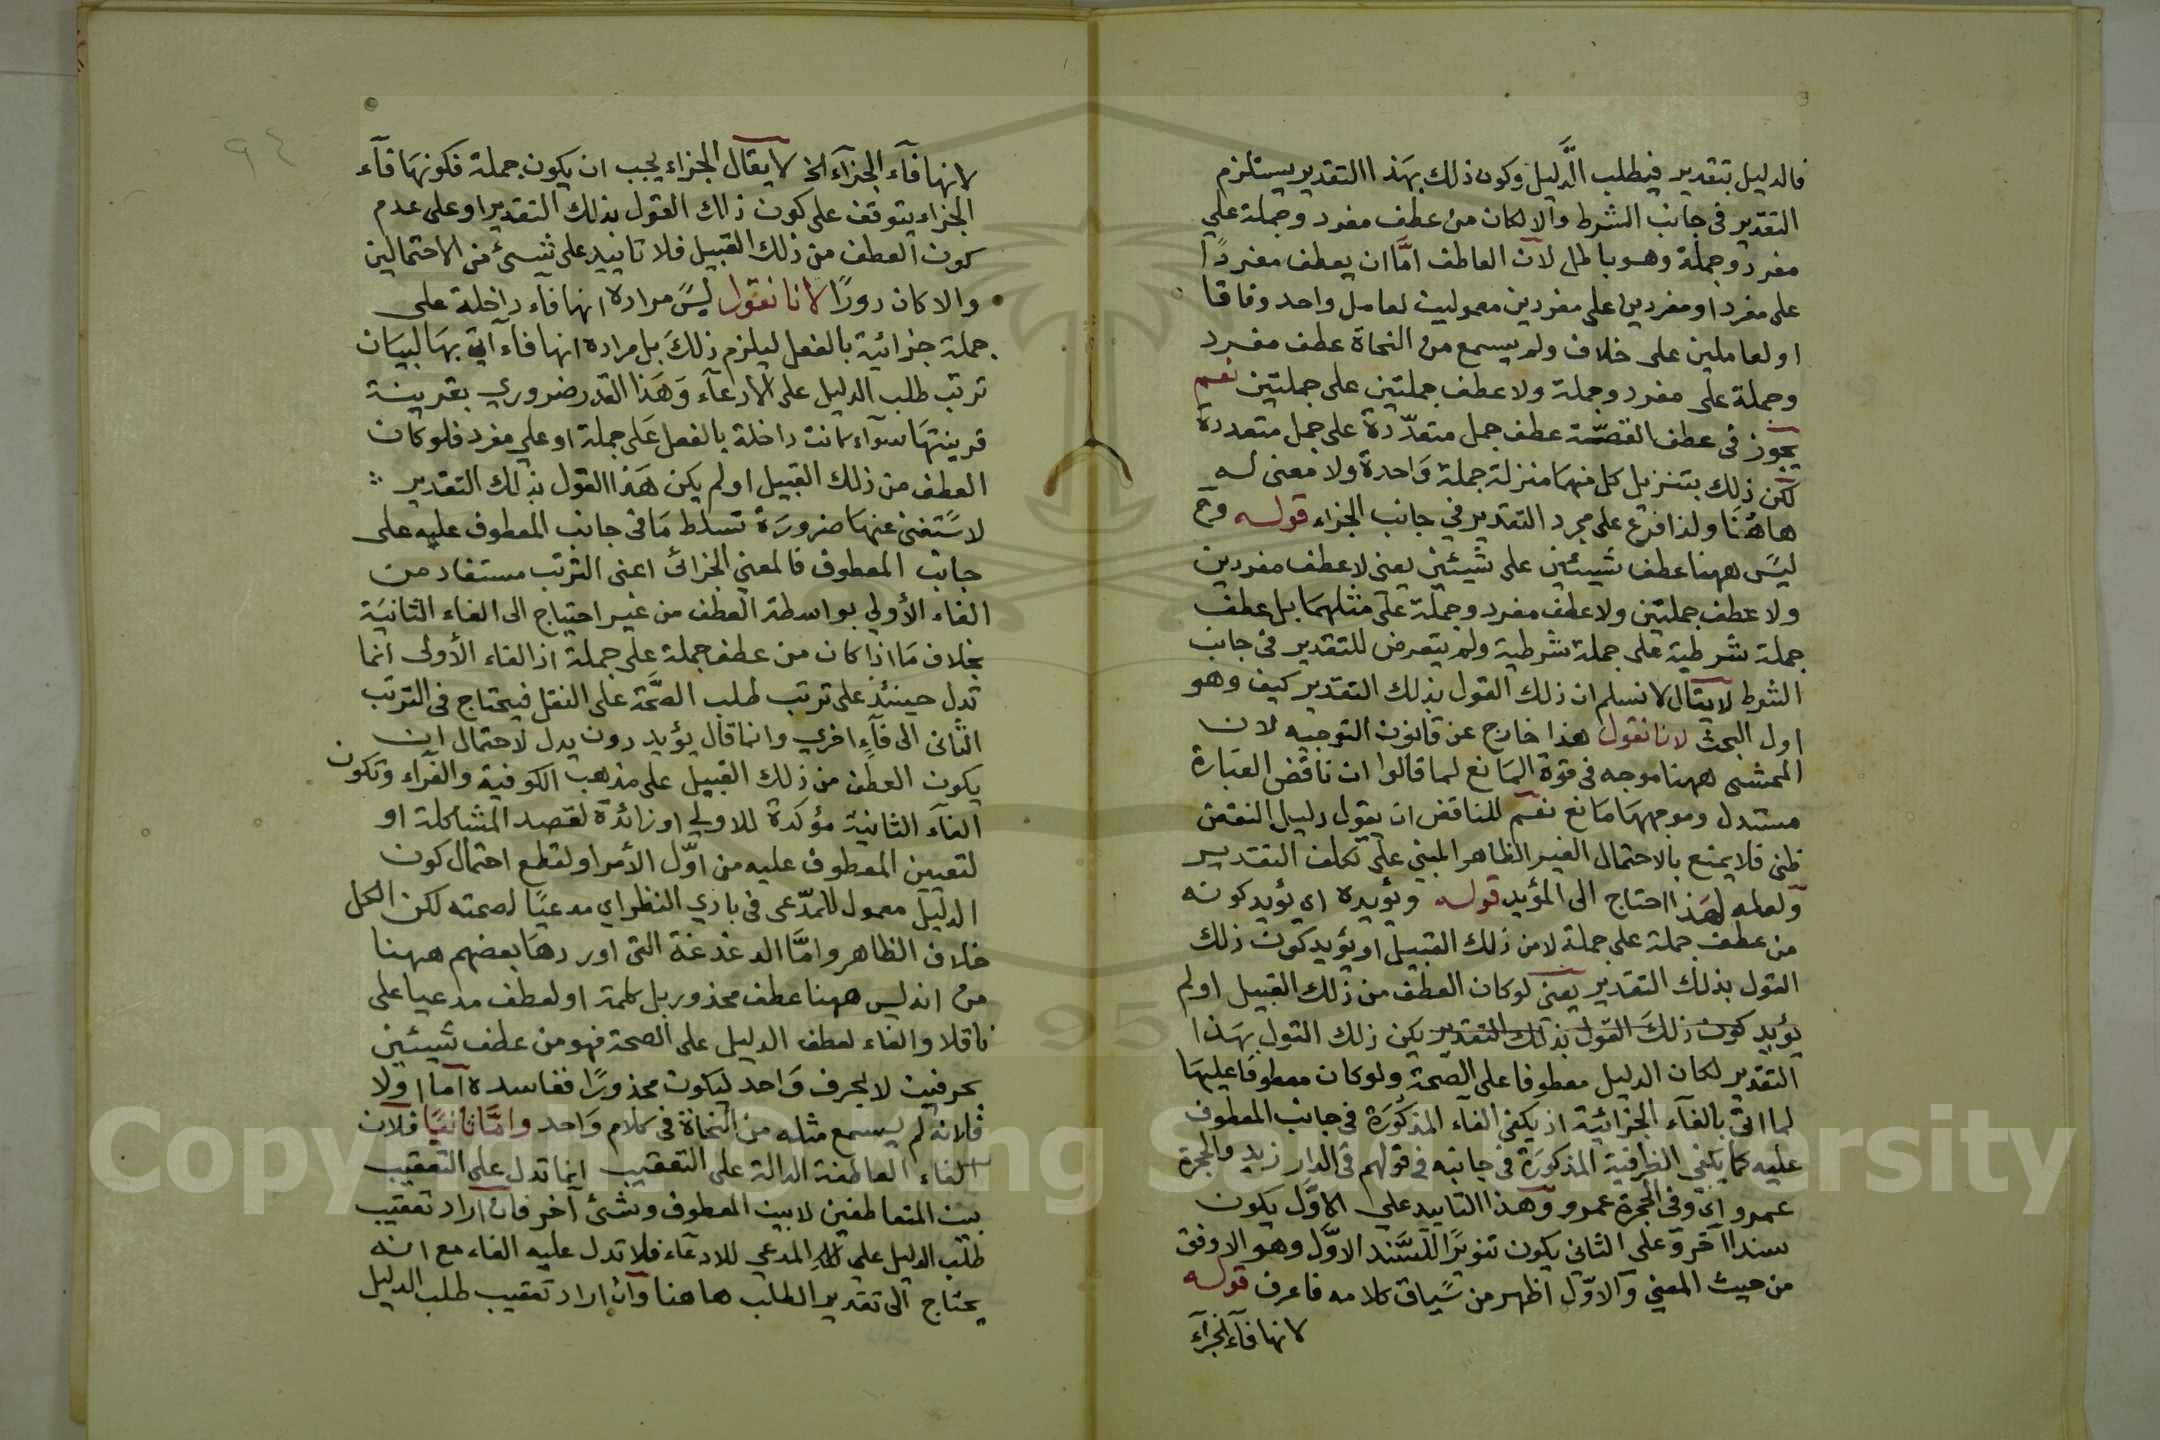 فالدليل بتقدير فيطلب الدَّليل وكون ذلك بهَذا التقدير يستلزم
التقدير في جانب الشرط والا لكان من عطف مفرد وجملة علي
مفرد وجملة وهو باطل لان العاطف امَّا ان يعطف مفردًا
على مفرد او مفردين على مفردين معمولين لعامل واحد وفاقا
او لعاملين على خلاف ولم يسمع من النحاة عطف مفرد
وجملة على مفرد وجملة ولا عطف جملتين على جملتين نعم
يجوز في عطف القصّة عطف جمل متعدّدة على جمل متعددة
لكن ذلك بتنزيل كل منهما منزلة جملة وَاحدة ولا معنى له
هاهُنَا ولذا فرع على مجرد التقدير في جانب الجزاء قوله وح
ليسَ ههنا عطف شيئين على شيئين يعنى لا عطف مفردين
ولا عطف جملتين ولا عطف مفرد وجملة على مثلهمَا بل عطف
جملة شرطية على جملة شرطية ولم يتعرض للتقدير في جانب
الشرط لايقال لا نسلم ان ذلك القول بذلك التقدير كيف وهو
اول البحث لانا نقول هذا خارج عن قانون التوجيه لان
المحشى ههنا موجه في قوة المَانع لما قالوا ان ناقض العبَارة
مستدل وموجههَا مَانع نعم للناقض ان يقول دليل النقض
ظنى فلا يمنع بالاحتمال الغير الظاهر المبني على تكلف التقدير
ولعله لهَذا احتاج الى المؤيد قوله ويؤيده اى يؤيد كونه
من عطف جملة على جملة لا من ذلك القبيل او يؤيد كون ذلك
القول بذلك التقدير يعنى لو كان العطف من ذلك القبيل او لم
يؤيد كون ذلكَ القول بذلك التقدير يكن ذلك القول بهَذا
التقدير لكان الدليل معطوفا على الصّحة ولو كان معطوفا عليهَا
لما اتى بالفآء الجزائية اذ يكفى الفآء المذكورَة في جانب المعطوف
عليه كما يكفي الظرفية المذكورَة في جانبه في قولهم في الدار زيد والحجرة
عمرو اى وفى الحجرة عمرو وهَذا التاييد علي الاوَّل يكون
سندا آخر وعلى الثاني يكون تنويرًا للسَّند الاوَّل وهو الاوفق
من حيث المعني والاوّل اظهر من سيَاق كلامه فاعرف قوله
لانها فآء الجزآء
لانها فآء الجزآء الخ لا يقال الجزاء يجب ان يكون جملة فكونهَا فآء
الجزاء يتوقف على كون ذلك القول بذلك التقدير او على عدم
كون العطف من ذلك القبيل فلا تاييد على شيئ من الاحتمالين
والا كان دورًا لانا نقول ليسَ مراده انها فآء داخلة على
جملة جزائية بالفعل ليلزم ذلكَ بل مراده انها فآء آتي بهَا لبيَان
ترتب طلب الدليل على الادعآء وَهَذا القدر ضروري بقرينة
قرينتهَا سوآء كانت داخلة بالفعل عَلى جملة او علي مفرد فلو كان
العطف من ذلك القبيل او لم يكن هَذا القول بذلك التقدير
لاسَتغنى عنهَا ضرورَة تسلط مَا في جانب المعطوف عليه على
جانب المعطوف فالمعني الجزائى اعنى الترتب مستفاد من
الفاء الأولي بواسطة العطف من غير احتياج الى الفاء الثانيَة
بخلاف مَا اذا كان من عطف جملة على جملة اذ الفاء الأولى انما
تدل حينئذ على ترتب طلب الصَّحّة على النقل فيحتاج في الترتب
الثانى الى فآءٍ اخري وانما قال يؤيد دون يدل لاحتمال ان
يكون العطف من ذلك القبيل على مذهب الكوفية والفراء وتكون
الفآء الثانية مؤكدة للاولي او زائدة لقصد المشاكلة او
لتعيين المعطوف عليه من اوّل الأمر او لقطع احتمال كون
الدليل معمول للمدّعى في بادي النظر اي مدعيًا لصحته لكن الكل
خلاف الظاهر وامَّا الدغدغة التى اوردهَا بعضهم ههنا
من انه ليس ههنا عطف محذور بل كلمة او لعطف مدعيا على
ناقلا والفاء لعطف الدليل على الصحة فهو من عطف شيئين
بحرفين لا بحرف وَاحد ليكون محذورًا ففاسدة اما اولا
فلانه لم يسمع مثله من النحاة في كلام وَاحد وامَّا ثانيًا فلان
الفاء العاطفة الدالة على التعقيب انما تدل على التعقيب
بين المتعاطفين لا بين المعطوف وشئ آخر فان اراد تعقيب
طلب الدليل على المدعي للادعآء فلا تدل عليه الفاء مع انه
يحتاج الى تقدير الطلب هاهنا وان اراد تعقيب طلب الدليل